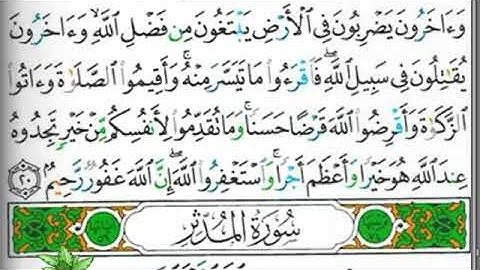 وَءَاخَرُونَ يَضْرِبُونَ فِى ٱلْأَرْضِ يَبْتَغُونَ مِن فَضْلِ ٱللَّهِ وَءَاخَرُونَ
يُقَٰتِلُونَ فِى سَبِيلِ ٱللَّهِ ۖ فَٱقْرَءُوا۟ مَا تَيَسَّرَ مِنْهُ ۚ وَأَقِيمُوا۟ ٱلصَّلَوٰةَ وَءَاتُوا۟
ٱلزَّكَوٰةَ وَأَقْرِضُوا۟ ٱللَّهَ قَرْضًا حَسَنًا ۚ وَمَا تُقَدِّمُوا۟ لِأَنفُسِكُم مِّنْ خَيْرٍ تَجِدُوهُ
عِندَ ٱللَّهِ هُوَ خَيْرًا وَأَعْظَمَ أَجْرًا ۚ وَٱسْتَغْفِرُوا۟ ٱللَّهَ ۖ إِنَّ ٱللَّهَ غَفُورٌ رَّحِيمٌۢ ٢٠
سُورَةُ المُدَّثِّرِ